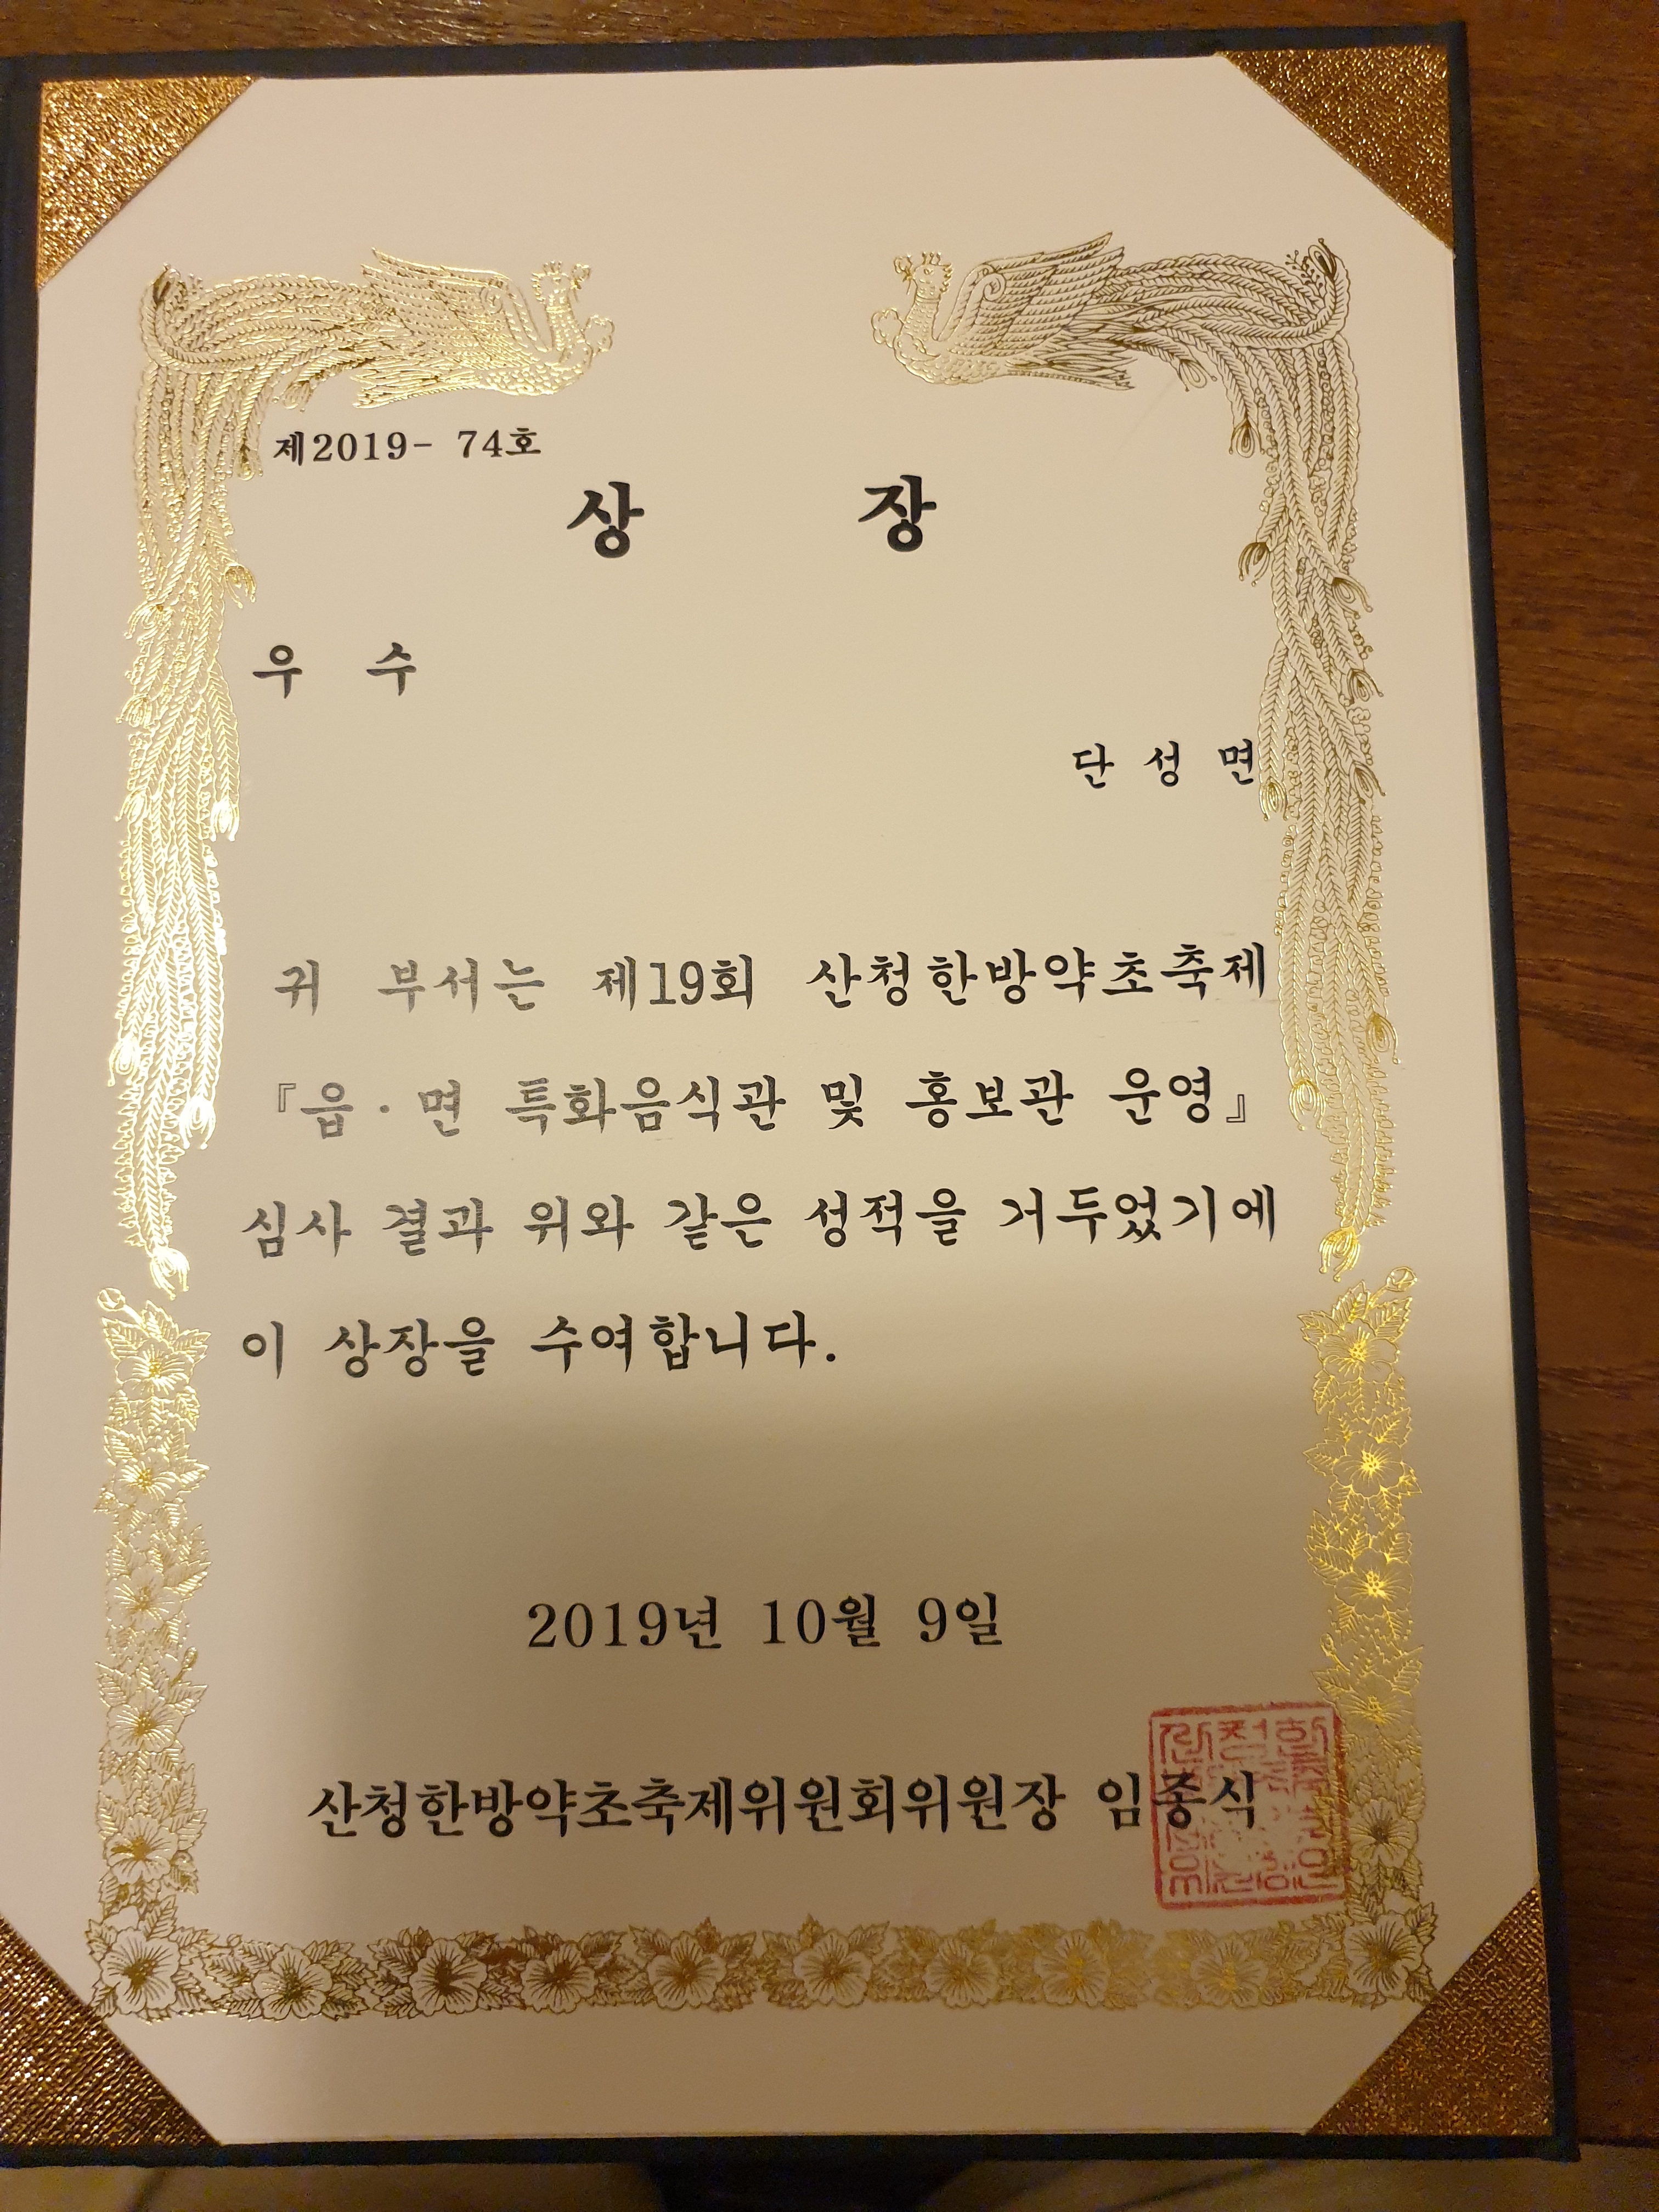 제2019- 74호
상 장
우 수
단 성 면
귀 부서는 제19회 산청한방약초축제
『읍·면 특화음식관 및 홍보관 운영』
심사 결과 위와 같은 성적을 거두었기에
이 상장을 수여합니다.
2019년 10월 9일
산청한방약초축제위원회위원장 임종식